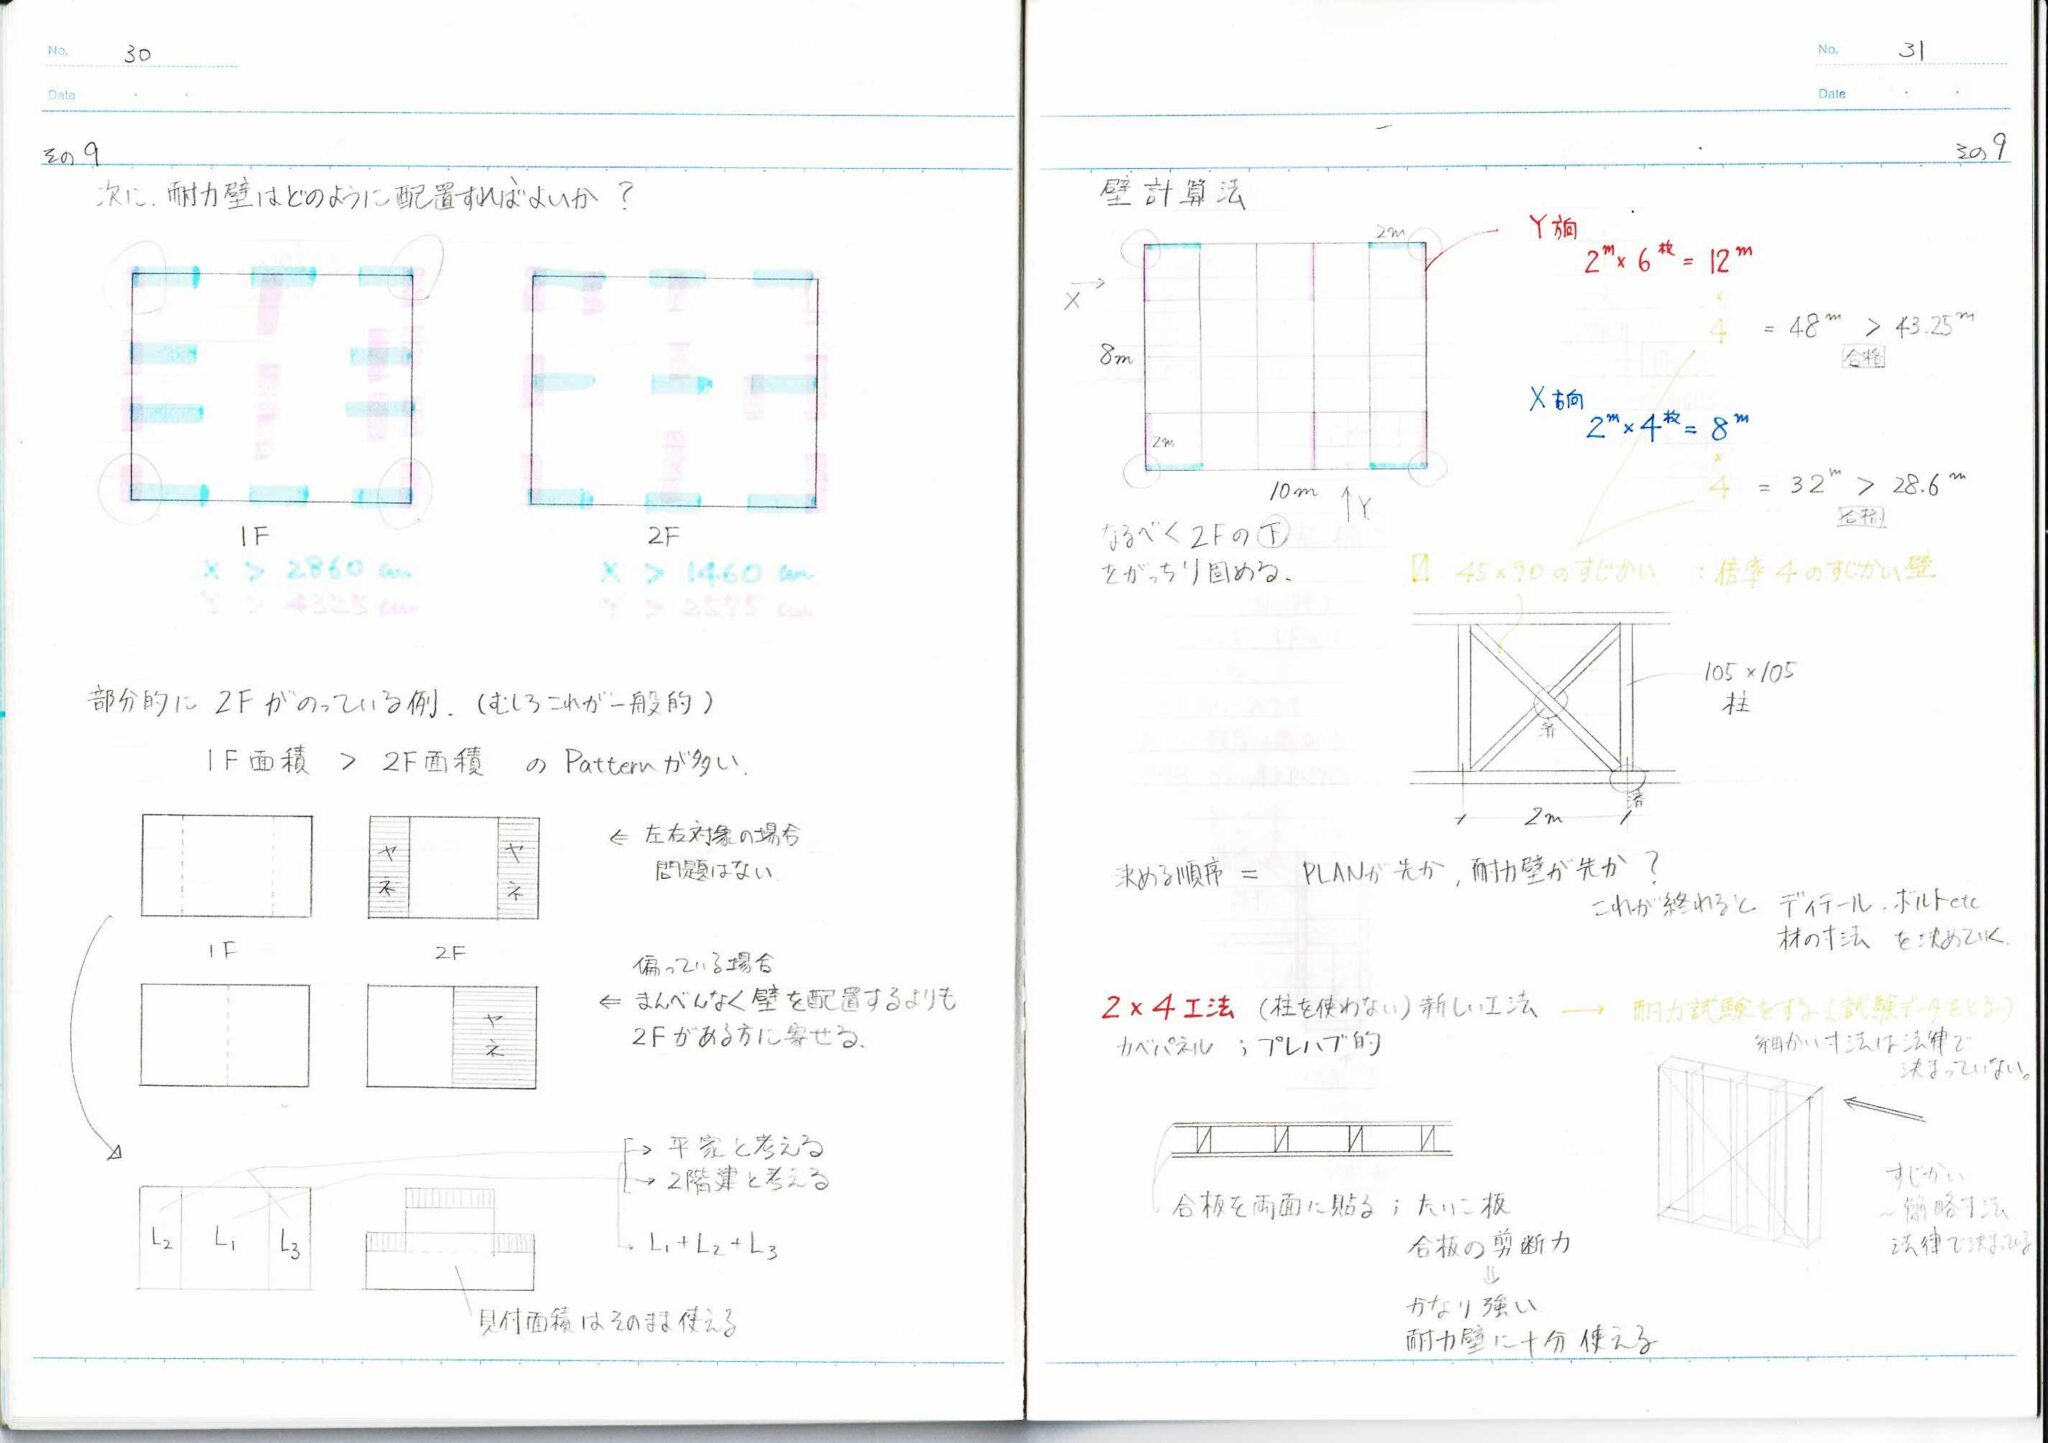 No. 30
Date
その9
次に、耐力壁はどのように配置すればよいか？
1F
2F
X > 2860 cm
Y > 4325 cm
X > 1460 cm
部分的に 2Fがのっている例. (むしろこれが一般的)
1F面積 > 2F面積 のPatternが多い.
ヤネ
ヤネ
⇐ 左右対象の場合
問題はない.
1F
2F
偏っている場合
⇐ まんべんなく壁を配置するよりも
2Fがある方に寄せる.
ヤネ
→ 平家と考える
→ 2階建と考える
L2 L1 L3
L1+L2+L3
見付面積はそのまま使える
No. 31
Date
その9
壁計算法
2m
X
8m
2m
10m
Y
Y方向
2m×6枚=12m
×
4 = 48m > 43.25m
合格
X方向
2m×4枚=8m
×
4 = 32m > 28.6m
合格
なるべく2Fの下
をがっちり固める.
45×90のすじかい : 倍率4のすじかい壁
105×105
柱
2m
決める順序 = PLANが先か, 耐力壁が先か？
これが終れると ディテール.ボルトetc
材の寸法 を決めていく.
2×4工法 (柱を使わない) 新しい工法 → 耐力試験をする(試験データをとる)
カベパネル ; プレハブ的
細かい寸法は法律で
決まっていない。
合板を両面に貼る ; たいこ板
合板の剪断力
⇓
かなり強い
耐力壁に十分使える
すじかい
〜簡略寸法
法律で決まっている